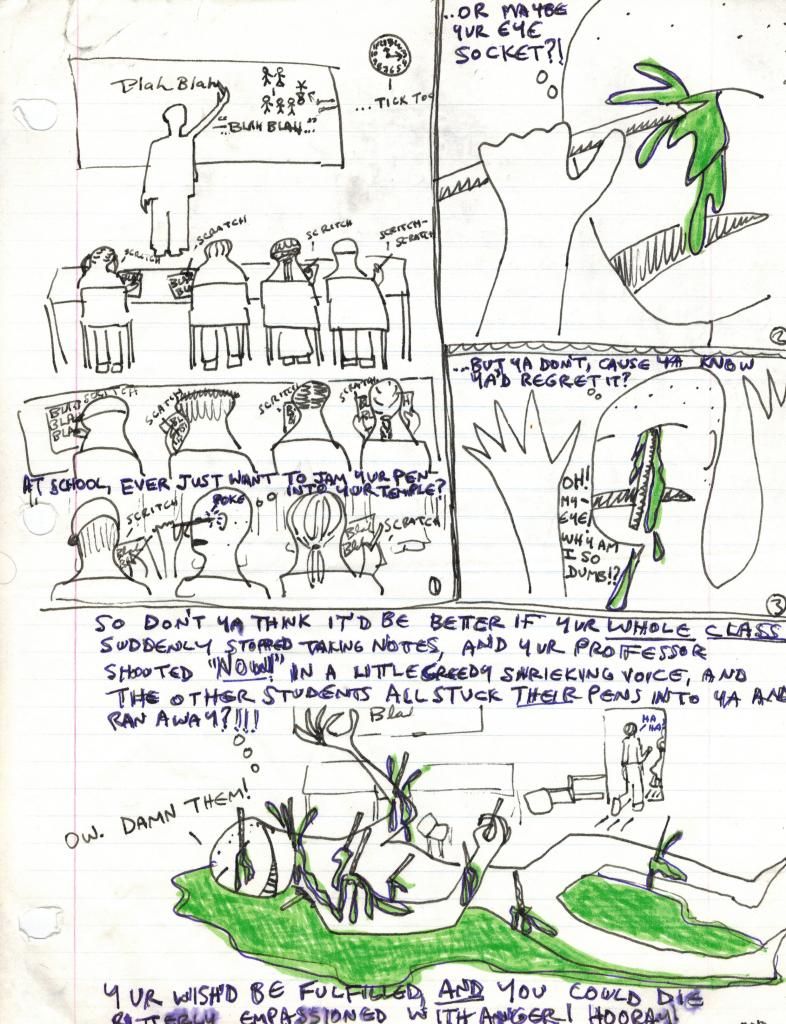 Blah Blah
"BLAH BLAH..."
...TICK TOC
SCRATCH
SCRATCH
SCRITCH
SCRITCH-
SCRATCH
SCRITCH
SCRATCH
SCRITCH
SCRATCH
BLAH
BLA
BLA
AT SCHOOL, EVER JUST WANT TO JAM YUR PEN
INTO YOUR TEMPLE?
SCRITCH
POKE
SCRATCH
1
...OR MAYBE
YUR EYE
SOCKET?!
2
...BUT YA DON'T, CAUSE YA KNOW
YA'D REGRET IT?
OH!
MY
EYE!
WHY AM
I SO
DUMB!?
3
SO DON'T YA THINK IT'D BE BETTER IF YUR WHOLE CLASS
SUDDENLY STOPPED TAKING NOTES, AND YUR PROFFESSOR
SHOUTED "NOW!" IN A LITTLE GREEDY SHRIEKING VOICE, AND
THE OTHER STUDENTS ALL STUCK THEIR PENS INTO YA AND
RAN AWAY?!!!
Bla
HA
HA!
OW. DAMN THEM!
YUR WISH'D BE FULFILLED, AND YOU COULD DIE
BITTERLY EMPASSIONED WITH ANGER! HOORAY!